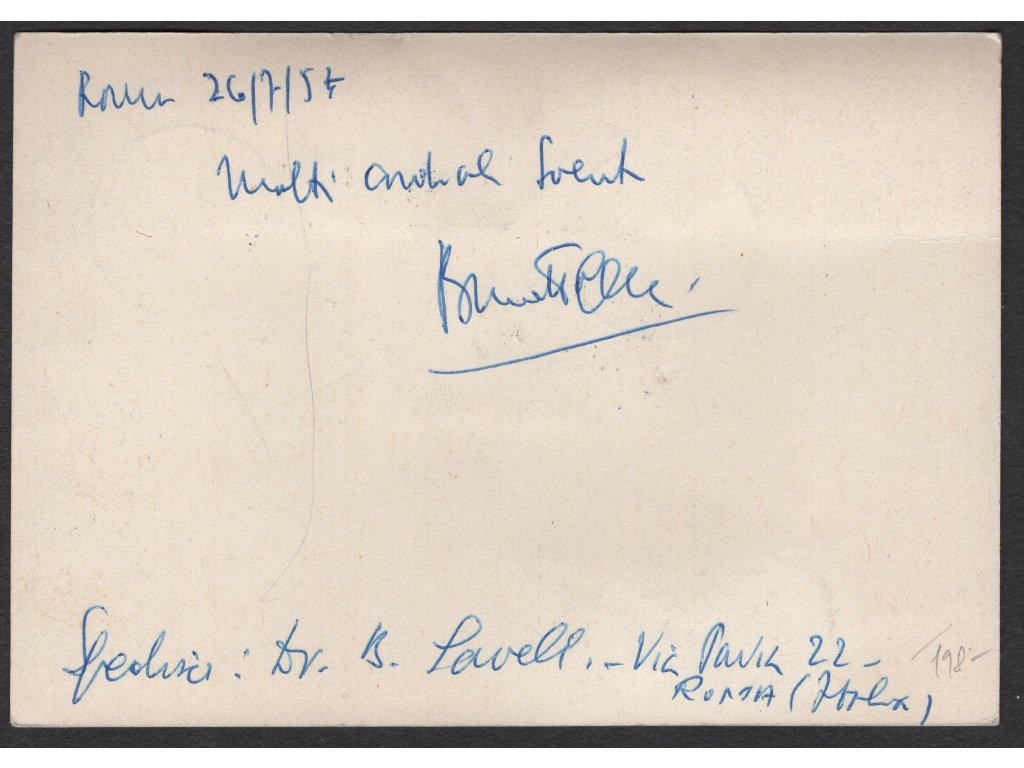 Roma 26/7/57
Molti cordiali saluti
Spedisce: Dr. B. Lavelli. - Via Pavia 22 -
ROMA (Italia)
198.-